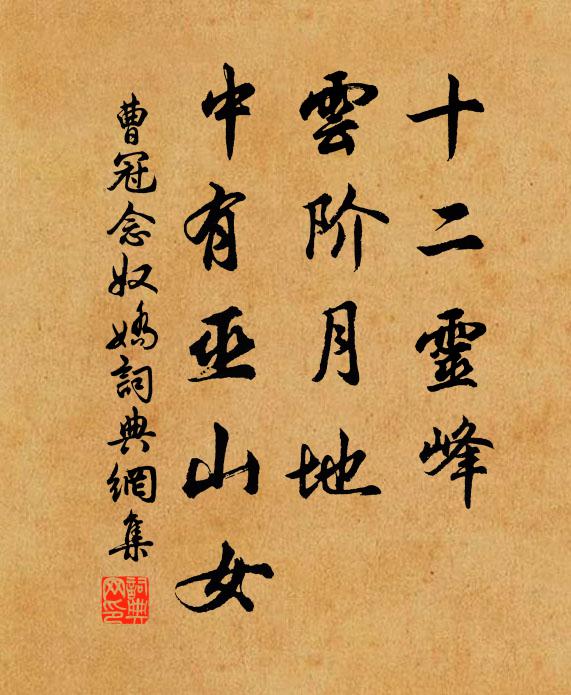 十二靈峰
雲阶月地
中有巫山女
曹冠念奴嬌詞典網集
詞典
网印